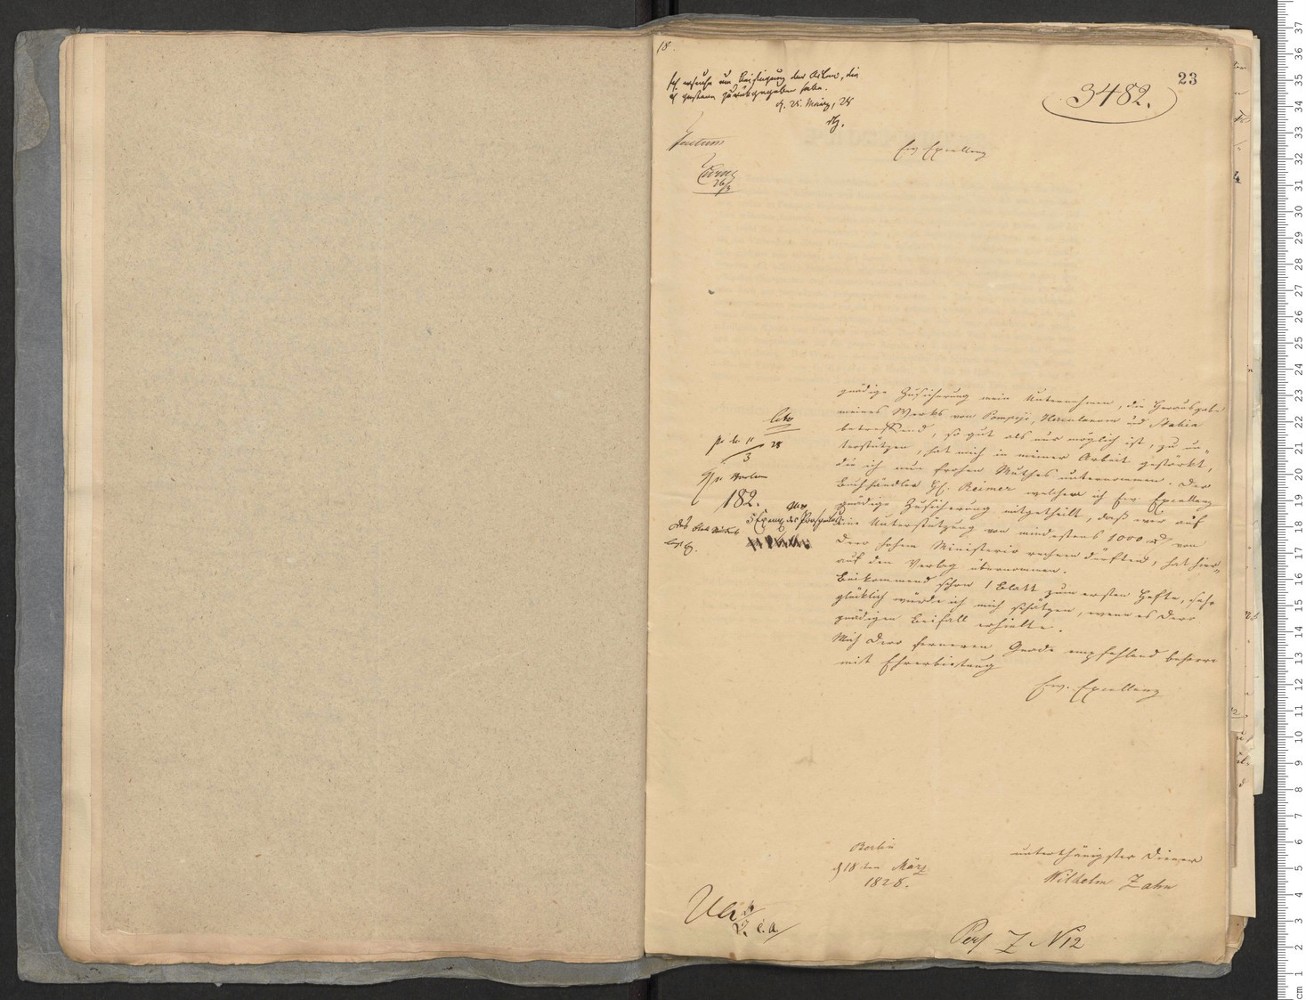 18.
23
3482.
ich ersuche um Beifügung der Acten, die
ich gestern zurückgegeben habe.
d. 25. März, 28
Ew. Excellenz
26/3
gnädige Zusicherung mein Unternehmen, die Herausgabe
meines Werks von Pompeji, Herculanum und Stabia
betreffend, so gut als nur möglich ist, zu un-
terstützen, hat mich in meiner Arbeit gestärkt,
die ich nun frohen Muthes unternommen. Der
Buchhändler H. Reimer welchem ich Ew Excellenz
gnädige Zusicherung mitgetheilt, daß wir auf
eine Unterstützung von mindestens 1000 von
dem hohen Ministerio rechnen dürften, hat hier-
auf den Verlag übernommen.
Beikommend schon 1 Blatt zum ersten Hefte, sehr
glücklich würde ich mich schätzen, wenn es dero
gnädigen Beifall erhielte.
Mich dero ferneren Gnade empfehlend beharre
mit Ehrerbietung
Ew. Excellenz
182.
5 Exempl. des Prospectus
Berlin
d 18 ten März
1828.
unterthänigster Diener
Wilhelm Zahn
Z N 12